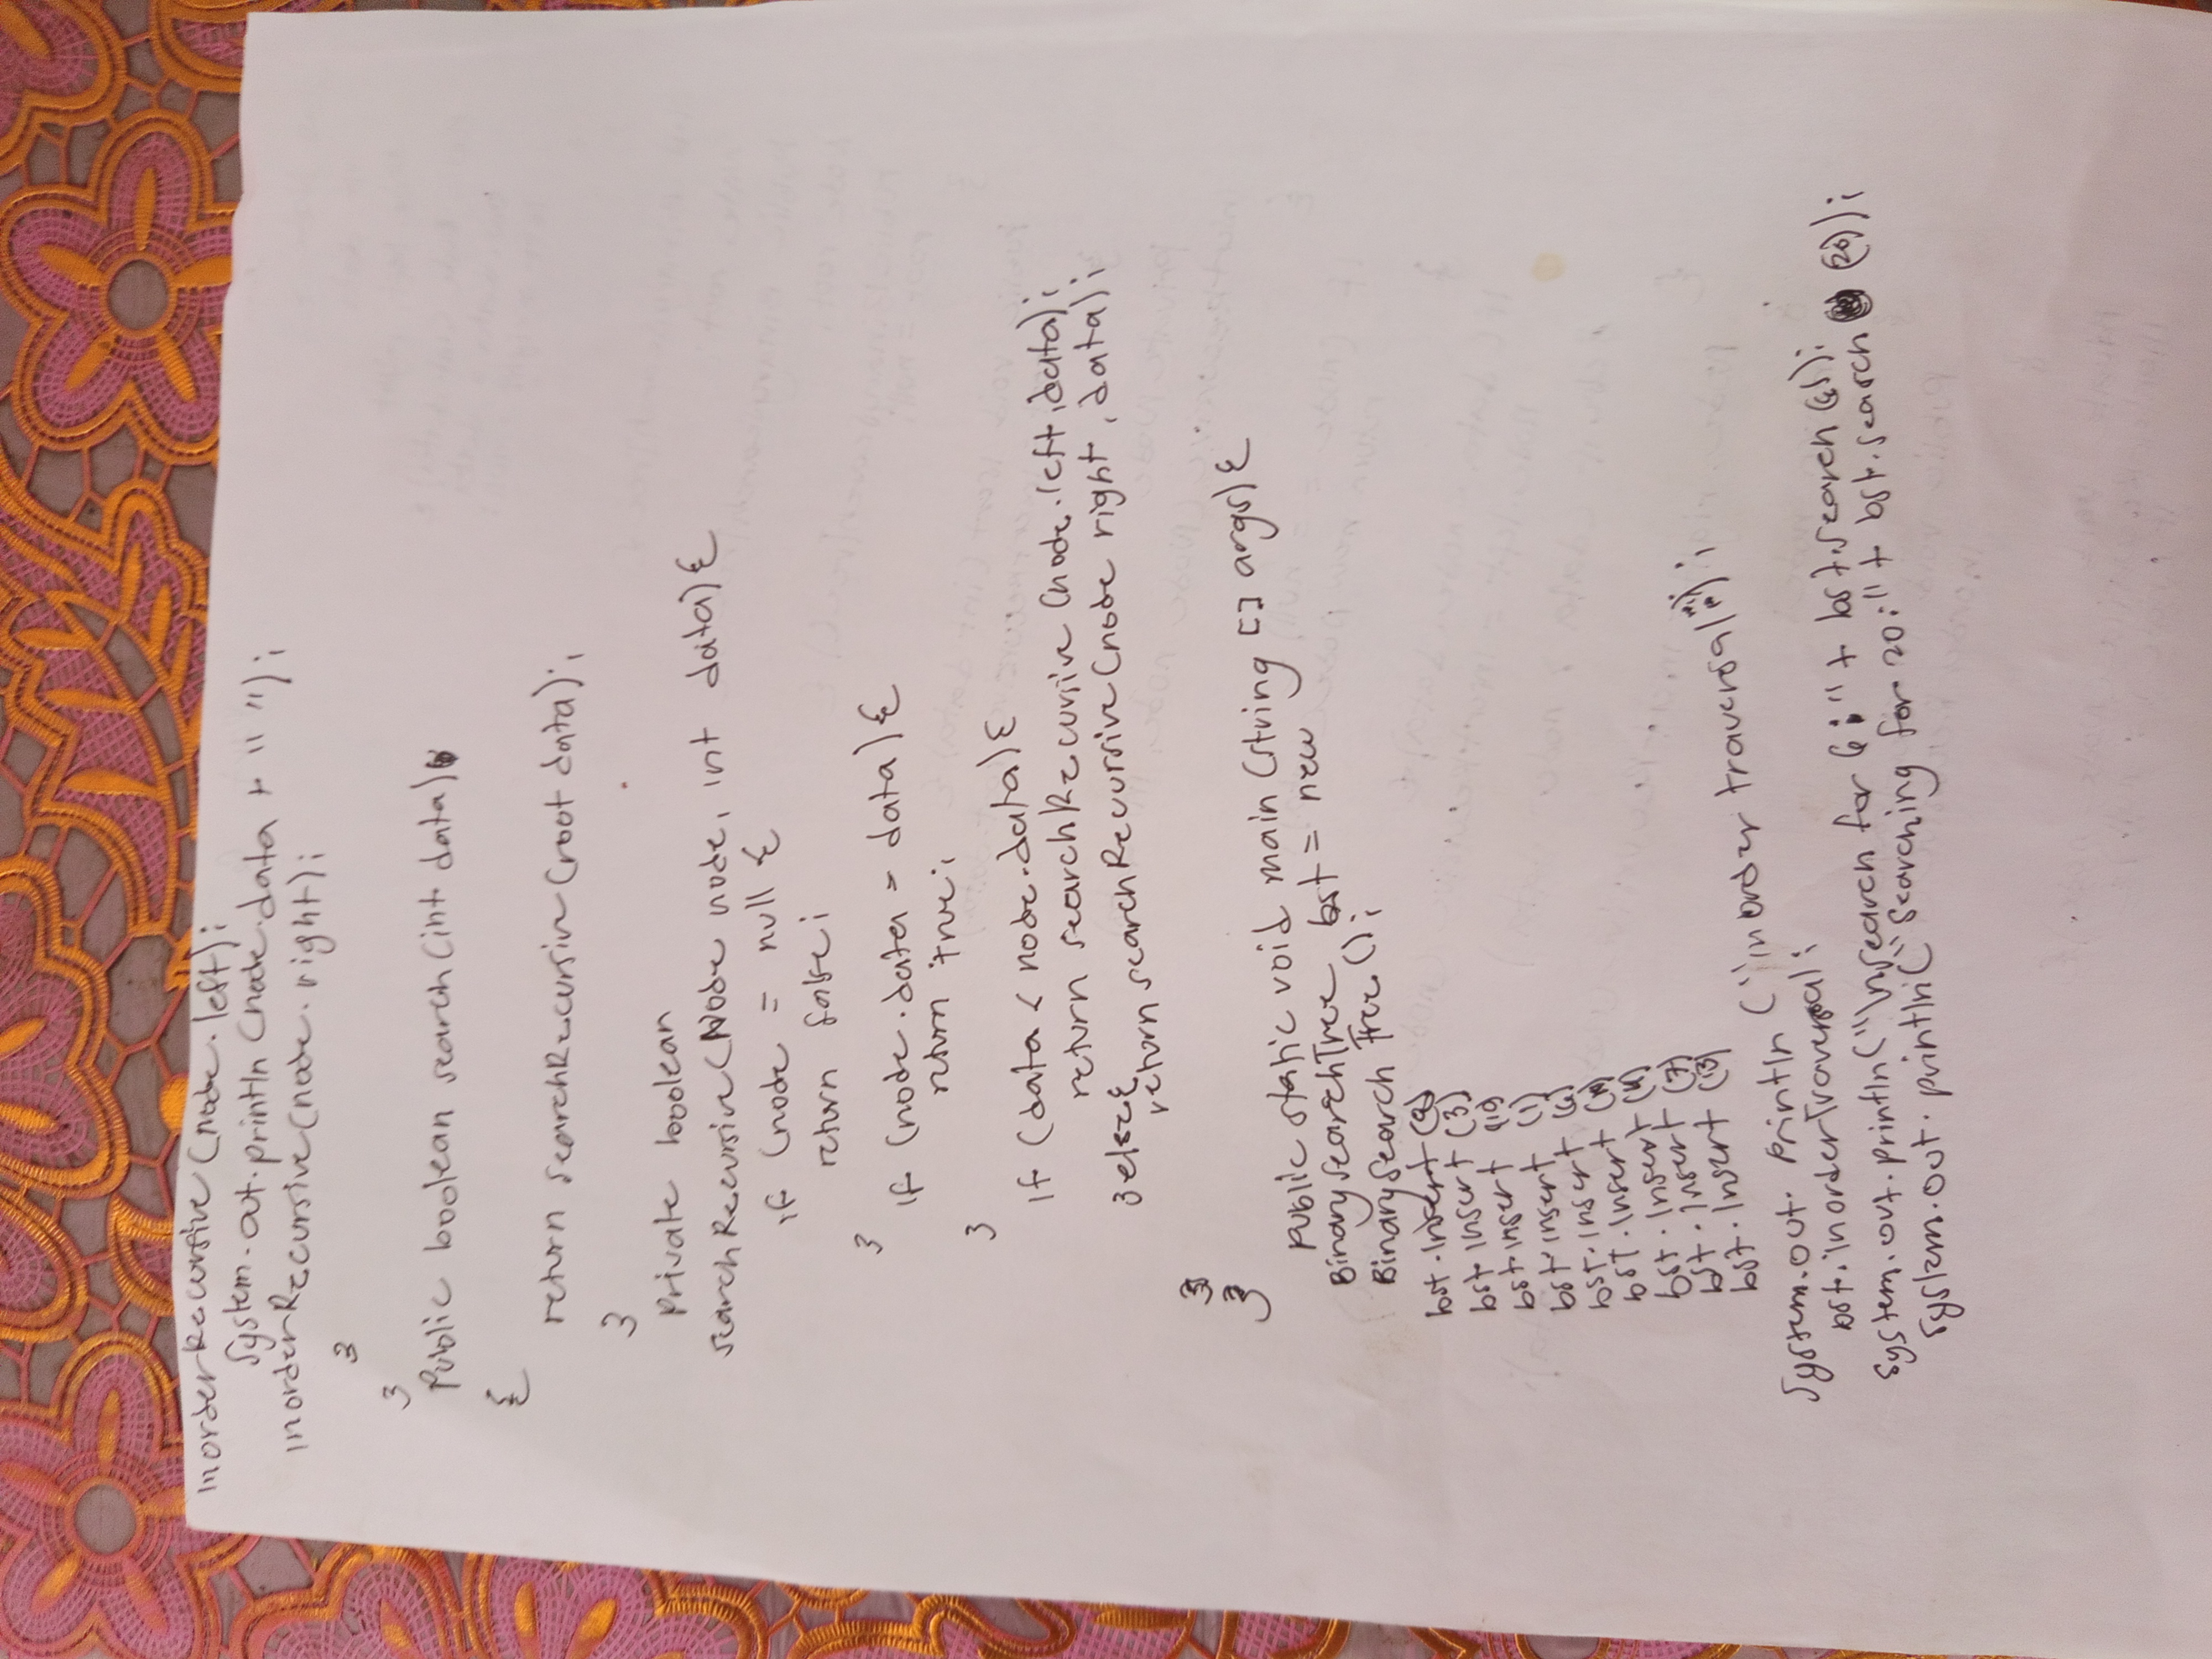 inorderRecursive (node.left);
System.out.println (node.data + " ");
inorderRecursive (node.right);
}
}
Public boolean search (int data)
{
return searchRecursive (root data);
}
Private boolean
searchRecursive (Node node, int data) {
if (node = null {
return false;
}
if (node.data = data) {
return true;
}
if (data < node.data) {
return searchRecursive (node.left, data);
} else {
return searchRecursive (node right, data);
}
}
Public static void main (string [] args) {
BinarySearchTree bst = new
BinarySearch Tree ();
bst.Insert (8)
bst insert (3)
bst insert
bst insert (1)
bst.insert (6)
bst.Insert
bst.Insert (4)
bst.Insert (7)
bst.Insert (13)
System.out.println ("inorder traversal");
bst.inorderTraversal);
System.out.println("\nsearch for 6:" + bst.search (6));
System.out.println("Searching for 20:" + bst.search (20));